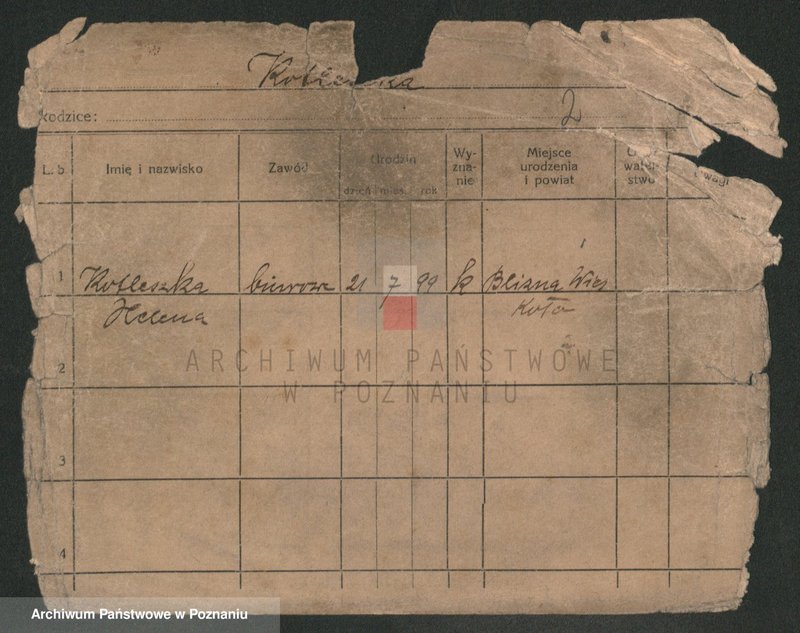 Kotleszka
Rodzice:
2
L. b.
Imię i nazwisko
Zawód
Urodzin
dzień
mies.
rok
Wy-
zna-
nie
Miejsce
urodzenia
i powiat
wagi
1
Kotleszka
Helena
biurowa
21
7
99
k
Blizna Wieś
Koło
2
3
4
ARCHIWUM PAŃSTWOWE
W POZNANIU
Archiwum Państwowe w Poznaniu